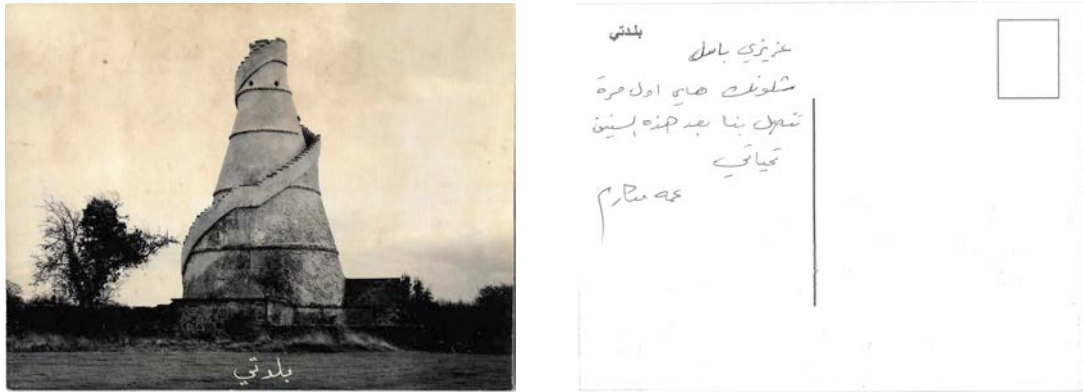 بلدتي
بلدتي
عزيزي باسل
شلونك هاي اول مرة
تتصل بنا بعد هذه السنين
تحياتي
عمه مكارم